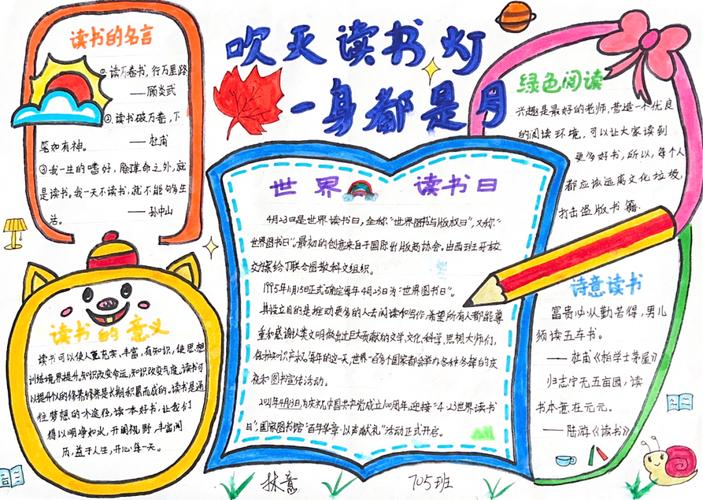 吹灭读书灯
一身都是月
读书的名言
①读万卷书，行万里路
——顾炎武
②读书破万卷，下
笔如有神。
——杜甫
③我一生的嗜好，除革命之外，就
是读书，我一天不读书，就不能够生
活。
——孙中山
读书的意义
读书可以使人重充实，丰富，有知识，使思想
训练境界提升，知识改变命运，知识改变气度。读书可
以提升
读书是通
往梦想的个途径，读一本好书，让我们
得以明净如水，开阔视野，丰富阅
历，益于人生，开心每一天。
世界 读书日
4月23日是世界读书日，全称"世界图书与版权日"，又称"
世界图书日"。最初的创意来自于国际出版商协会。由西班牙转
交方案给了联合国教科文组织。
1995年
正式确定每年4月23日为"世界图书日"。
其设立目的是推动更多的人去阅读和写作，希望所有人都能尊
重和感谢为人类文明做出过巨大贡献的文学，文化，科学，思想大师们，
保护知识产权。每年的这一天，世界一百多个国家都会举办各种各样的庆
祝和图书宣传活动。
2021年4月
为庆祝中国共产党成立100周年，迎接"4·23世界读书
日"，国家图书馆"百年华章·以声献礼"活动正式开启。
绿色阅读
兴趣是最好的老师，营造一个优良
的阅读环境，可以让大家读到
更多好书，所以，每个人
都应该远离文化垃圾，
打击盗版书籍。
诗意读书
富贵必从勤苦得，男儿
须读五车书。
——杜甫《柏学士茅屋》
归志宁无五亩园，读
书本意在元元。
——陆游《读书》
705班